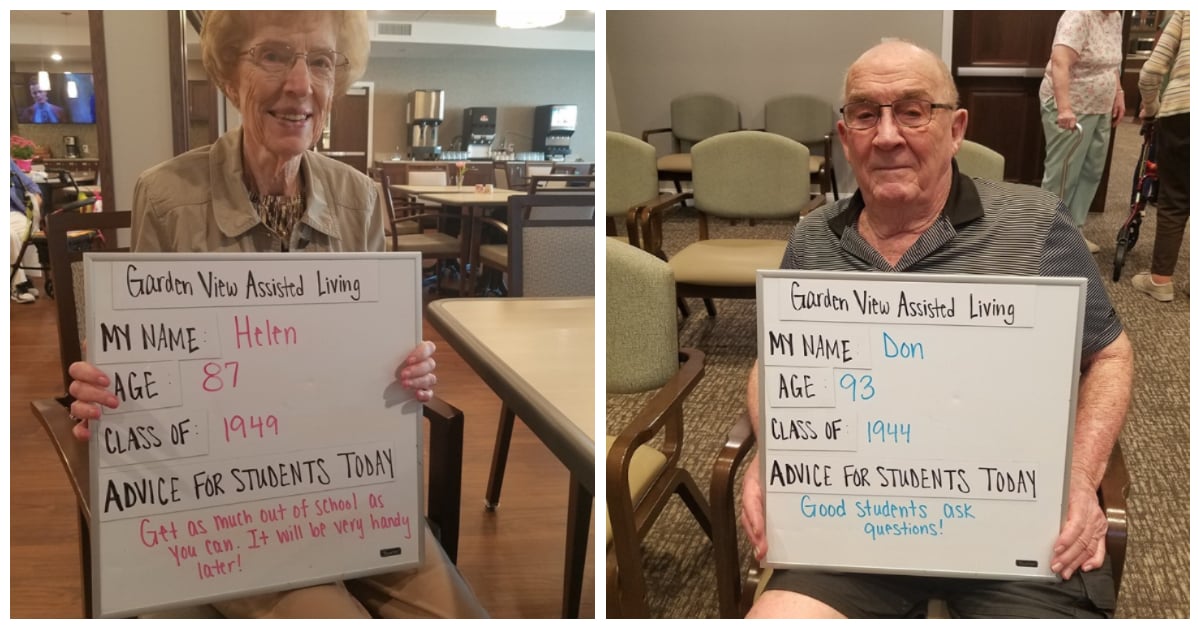 Garden View Assisted Living
MY NAME: Helen
AGE: 87
CLASS OF: 1949
ADVICE FOR STUDENTS TODAY
Get as much out of school as
you can. It will be very handy
later!
Garden View Assisted Living
MY NAME: Don
AGE: 93
CLASS OF: 1944
ADVICE FOR STUDENTS TODAY
Good students ask
questions!